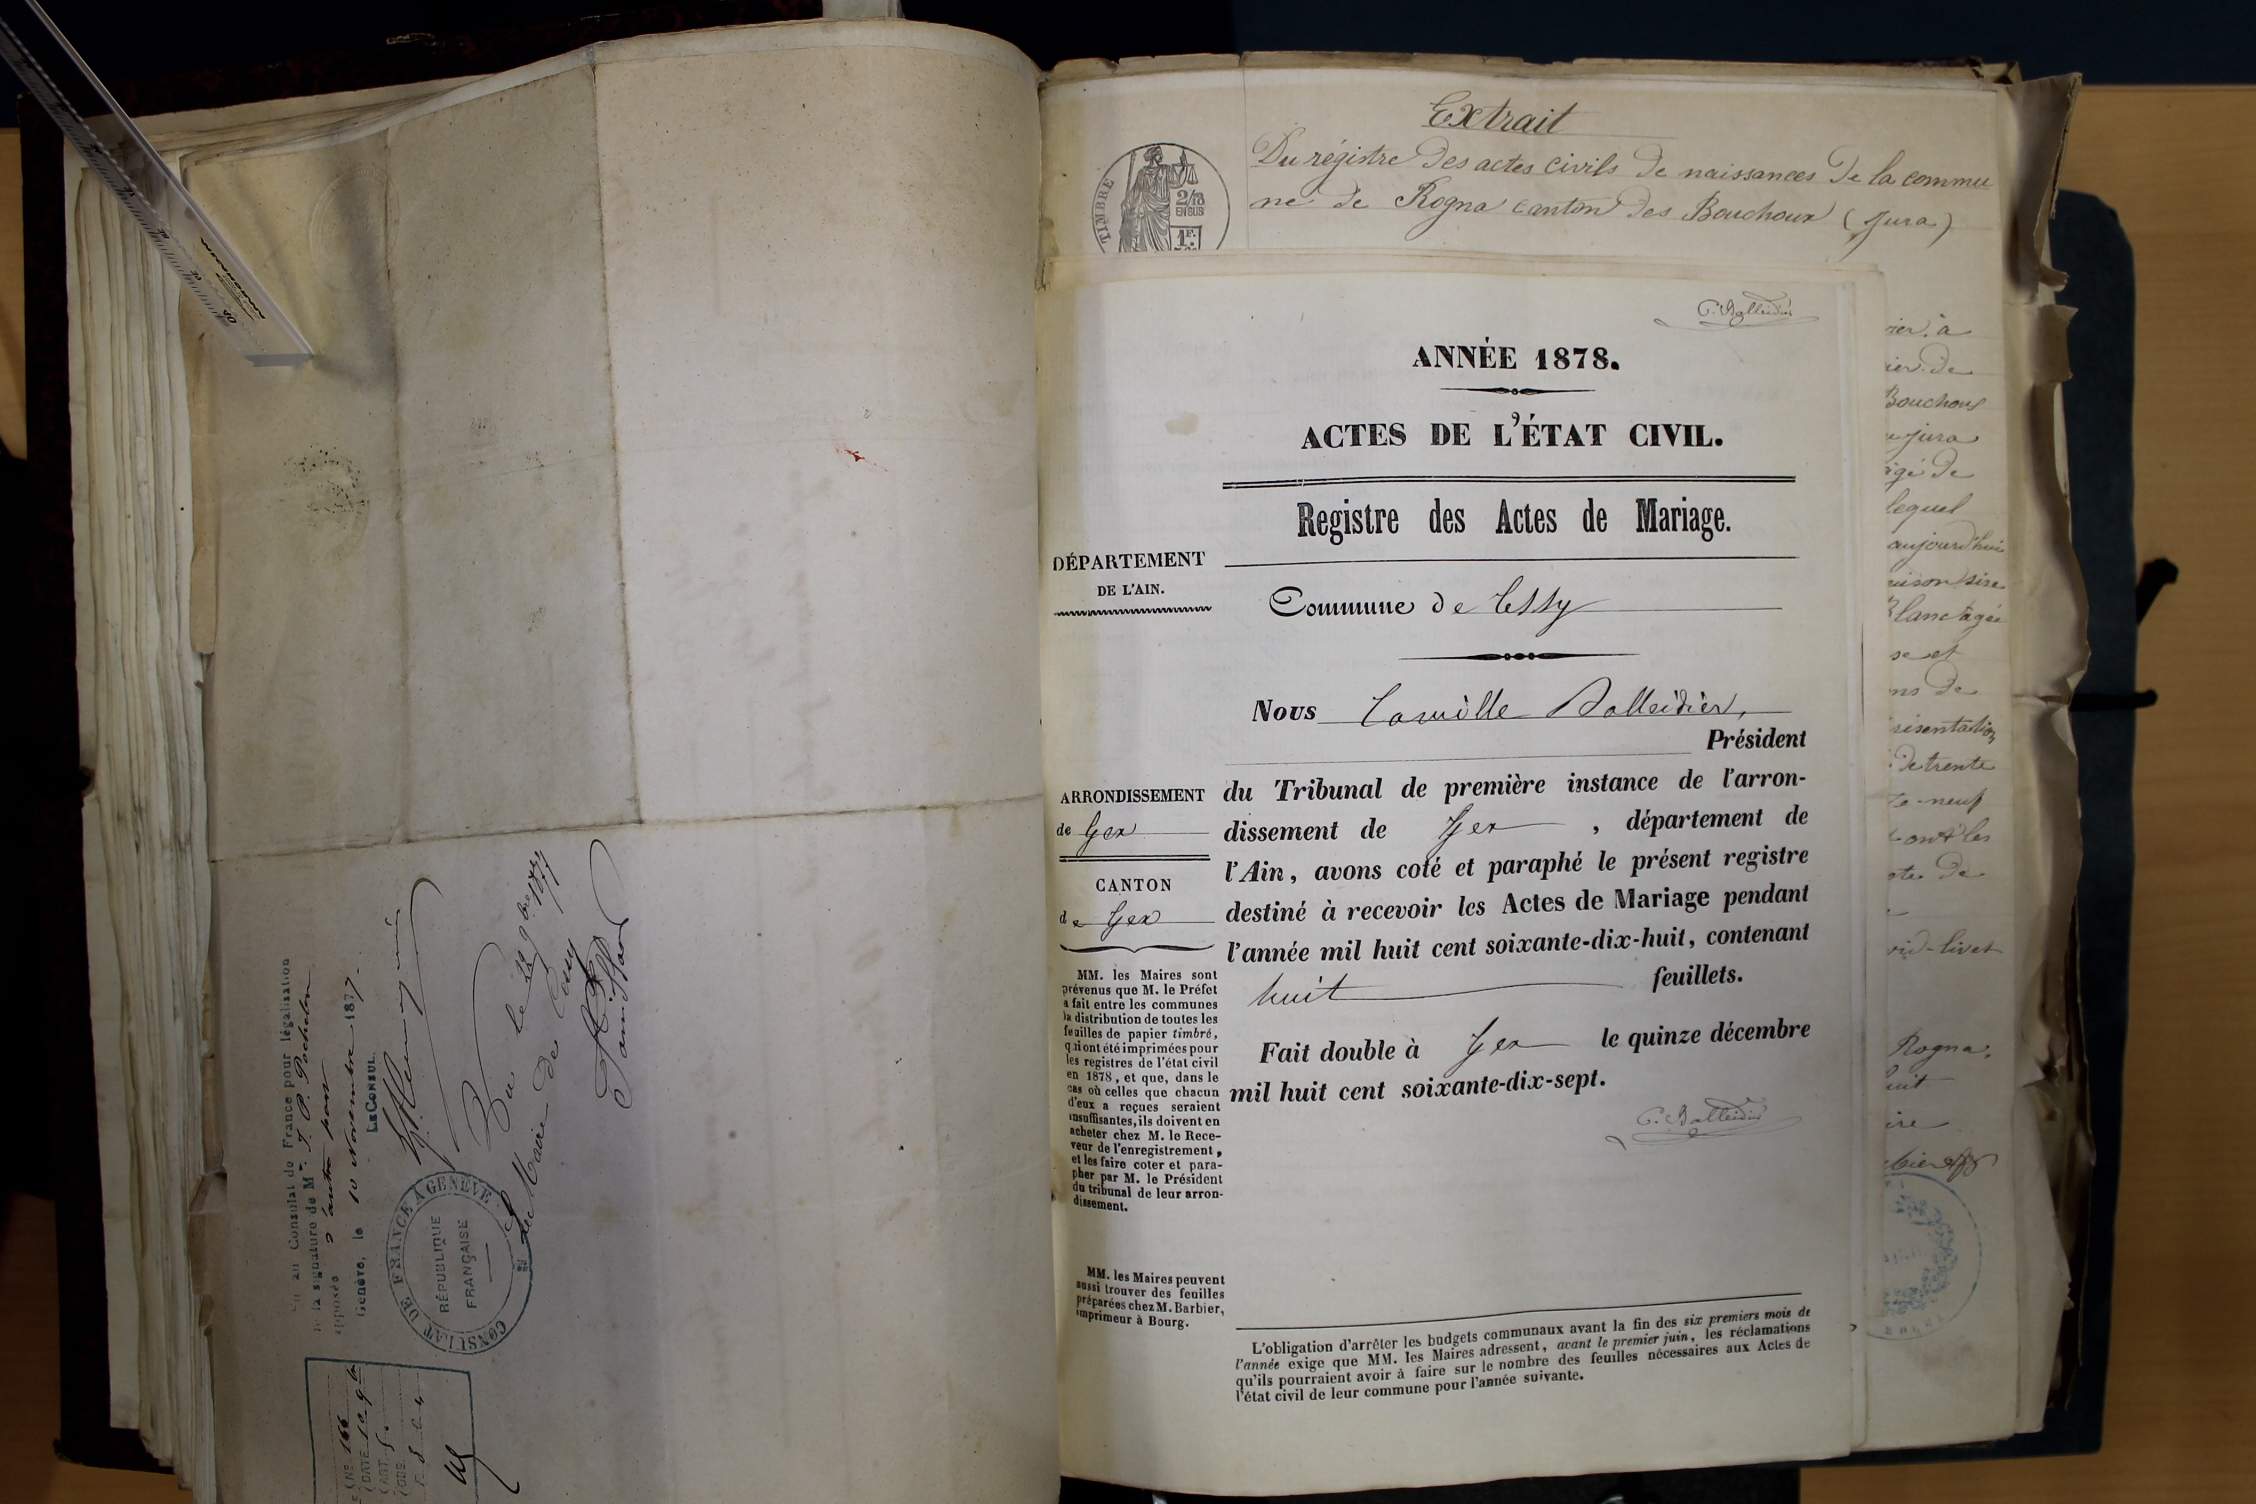 Vu au Consulat de France pour légalisation
de la signature de Mr. J. P. Pochelon
apposée d'autre part
Genève, le 10 Novembre 1877
LE CONSUL.
CONSULAT DE FRANCE A GENÈVE
RÉPUBLIQUE
FRANÇAISE
Vu le 29 9bre 1877
Le Maire de
N° 166
DATE 10 9b
ART. 5
Extrait
Du régistre des actes civils de naissances de la commu
ne de Rogna canton des Bouchoux (Jura)
TIMBRE
2/10
EN SUS
1F.
C. Balleidier
ANNÉE 1878.
ACTES DE L'ÉTAT CIVIL.
Registre des Actes de Mariage.
DÉPARTEMENT
DE L'AIN.
Commune de Cessy
Nous Camille Balleidier,
Président
ARRONDISSEMENT
de Gex
CANTON
de Gex
du Tribunal de première instance de l'arron-
dissement de Gex, département de
l'Ain, avons coté et paraphé le présent registre
destiné à recevoir les Actes de Mariage pendant
l'année mil huit cent soixante-dix-huit, contenant
huit feuillets.
Fait double à Gex le quinze décembre
mil huit cent soixante-dix-sept.
C. Balleidier
MM. les Maires sont
prévenus que M. le Préfet
a fait entre les communes
la distribution de toutes les
feuilles de papier timbré,
qui ont été imprimées pour
les registres de l'état civil
en 1878, et que, dans le
cas où celles que chacun
d'eux a reçues seraient
insuffisantes, ils doivent en
acheter chez M. le Rece-
veur de l'enregistrement,
et les faire coter et para-
pher par M. le Président
du tribunal de leur arron-
dissement.
MM. les Maires peuvent
aussi trouver des feuilles
préparées chez M. Barbier,
imprimeur à Bourg.
L'obligation d'arrêter les budgets communaux avant la fin des six premiers mois de
l'année exige que MM. les Maires adressent, avant le premier juin, les réclamations
qu'ils pourraient avoir à faire sur le nombre des feuilles nécessaires aux Actes de
l'état civil de leur commune pour l'année suivante.
à
de
Bouchoux
jura
de
lequel
aujourd'hui
sire
et
de
de trente
les
de
Rogna,